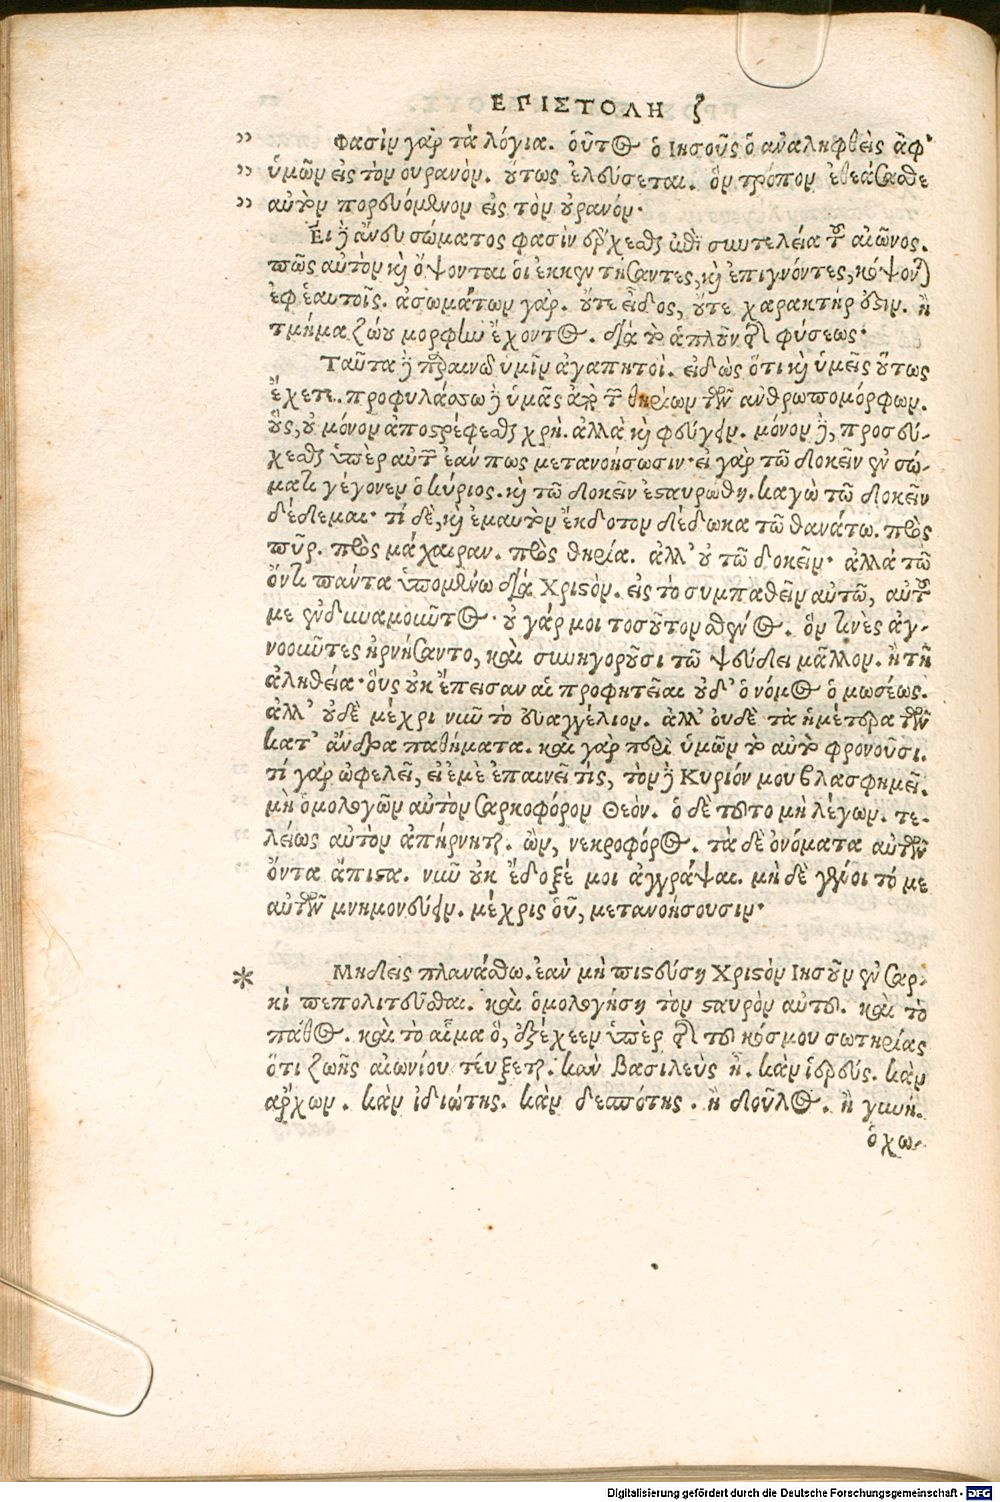 ΕΠΙΣΤΟΛΗ ζ
„ Φασὶν γὰρ τὰ λόγια. οὗτος ὁ Ιησοῦς ὁ ἀναληφθεὶς ἀφ'
„ ὑμῶν εἰς τὸν ουρανόν. οὕτως ἐλεύσεται. ὃν τρόπον ἐθεάσασθε
„ αὐτὸν πορευόμενον εἰς τὸν οὐρανόν.
Εἰ δὲ ἄνευ σώματος φασὶν ἔρχεσθαι ἐπὶ συντελεία τοῦ αἰῶνος.
πῶς αὐτὸν καὶ ὄψονται οἱ ἐκκεντήσαντες, καὶ ἐπιγνόντες, κόψονται
ἐφ ἑαυτοῖς. ἀσωμάτων γὰρ. οὔτε εἶδος, οὔτε χαρακτήρ ἐστιν. ἢ
τμῆμα ζώου μορφὴν ἔχοντος. διὰ τὸ ἁπλοῦν τῆς φύσεως.
Ταῦτα δὲ παραινῶ ὑμῖν ἀγαπητοὶ. εἰδὼς ὅτι καὶ ὑμεῖς οὕτως
ἔχετε. προφυλάσσω δὲ ὑμᾶς ἀπὸ τῶν θηρίων τῶν ἀνθρωπομόρφων.
οὓς, οὐ μόνον ἀποστρέφεσθαι χρὴ. ἀλλὰ καὶ φεύγειν. μόνον δὲ, προσεύ-
χεσθαι ὑπὲρ αὐτῶν ἐάν πως μετανοήσωσιν. εἰ γὰρ τῶ δοκεῖν ἐν σώ-
ματι γέγονεν ὁ κύριος. καὶ τῶ δοκεῖν ἐσταυρώθη. καγὼ τῶ δοκεῖν
δέδεμαι. τί δὲ, καὶ ἐμαυτὸν ἔκδοτον δέδωκα τῶ θανάτω. πρὸς
πῦρ. πρὸς μάχαιραν. πρὸς θηρία. ἀλλ' οὐ τῶ δοκεῖν. ἀλλά τῶ
ὄντι πάντα ὑπομένω διὰ Χριστὸν. εἰς τὸ συμπαθεῖν αὐτῶ, αὐτοῦ
με ἐνδυναμοῦντος. οὐ γάρ μοι τοσοῦτον σθένος. ὃν τινὲς ἀγ-
νοοῦντες ἠρνήσαντο, καὶ συνηγοροῦσι τῶ ψεύδει μᾶλλον. ἢ τῆ
ἀληθεία. οὓς οὐκ ἔπεισαν αἱ προφητεῖαι οὐδ' ὁ νόμος ὁ μωσέως.
ἀλλ' οὐδὲ μέχρι νῦν τὸ εὐαγγέλιον. ἀλλ' ουδὲ τὰ ἡμέτερα τῶν
κατ' ἄνδρα παθήματα. καὶ γὰρ περὶ ὑμῶν τὸ αὐτὸ φρονοῦσι.
τί γὰρ ὠφελεῖ, εἰ ἐμὲ ἐπαινεῖ τίς, τὸν δὲ Κυριόν μου βλασφημεῖ.
μὴ ὁμολογῶν αὐτὸν σαρκοφόρον Θεόν. ὁ δὲ τοῦτο μὴ λέγων. τε-
λείως αὐτὸν ἀπήρνηται. ὢν, νεκροφόρος. τὰ δὲ ὀνόματα αὐτῶν
ὄντα ἄπιστα. νῦν οὐκ ἔδοξέ μοι ἀγγράψαι. μὴ δὲ γένοιτό με
αὐτῶν μνημονεύειν. μέχρις οὗ, μετανοήσουσιν.
* Μηδεὶς πλανάσθω. ἐὰν μὴ πιστεύση Χριστὸν Ιησοῦν ἐν σαρ-
κὶ πεπολιτεῦσθαι. καὶ ὁμολογήση τὸν σταυρὸν αὐτοῦ. καὶ τὸ
πάθος. καὶ τὸ αἷμα ὅ, ἐξέχεεν ὑπὲρ τῆς τοῦ κόσμου σωτηρίας
ὅτι ζωῆς αἰωνίου τεύξεται. καν Βασιλεὺς ἢ. κἀν ἱερεύς. κἀν
ἄρχων. κἀν ἰδιώτης. κὰν δεσπότης. ἢ δοῦλος. ἢ γυνή.
ὁ χω-
Digitalisierung gefördert durch die Deutsche Forschungsgemeinschaft - DFG